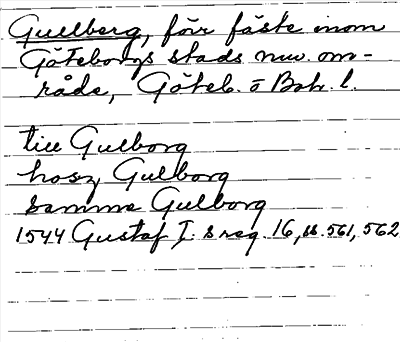 Gullberg, förr fäste inom
Göteborgs stads nuv. om-
råde, Göteb. o Boh. l.
till Gulborg
hosz Gulborg
samma Gulborg
1544 Gustaf I:s reg. 16, ss. 561, 562